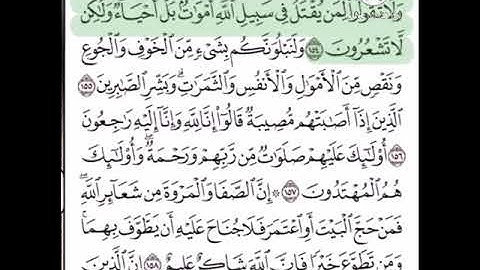 وَلَا تَقُولُوا۟ لِمَن يُقْتَلُ فِى سَبِيلِ ٱللَّهِ أَمْوَٰتٌۢ بَلْ أَحْيَآءٌ وَلَٰكِن
لَّا تَشْعُرُونَ ١٥٤ وَلَنَبْلُوَنَّكُم بِشَىْءٍ مِّنَ ٱلْخَوْفِ وَٱلْجُوعِ
وَنَقْصٍ مِّنَ ٱلْأَمْوَٰلِ وَٱلْأَنفُسِ وَٱلثَّمَرَٰتِ ۗ وَبَشِّرِ ٱلصَّٰبِرِينَ ١٥٥
ٱلَّذِينَ إِذَآ أَصَٰبَتْهُم مُّصِيبَةٌ قَالُوٓا۟ إِنَّا لِلَّهِ وَإِنَّآ إِلَيْهِ رَٰجِعُونَ
١٥٦ أُو۟لَٰٓئِكَ عَلَيْهِمْ صَلَوَٰتٌ مِّن رَّبِّهِمْ وَرَحْمَةٌ ۖ وَأُو۟لَٰٓئِكَ
هُمُ ٱلْمُهْتَدُونَ ١٥٧ ۞ إِنَّ ٱلصَّفَا وَٱلْمَرْوَةَ مِن شَعَآئِرِ ٱللَّهِ ۖ
فَمَنْ حَجَّ ٱلْبَيْتَ أَوِ ٱعْتَمَرَ فَلَا جُنَاحَ عَلَيْهِ أَن يَطَّوَّفَ بِهِمَا ۚ
وَمَن تَطَوَّعَ خَيْرًا فَإِنَّ ٱللَّهَ شَاكِرٌ عَلِيمٌ ١٥٨ إِنَّ ٱلَّذِينَ